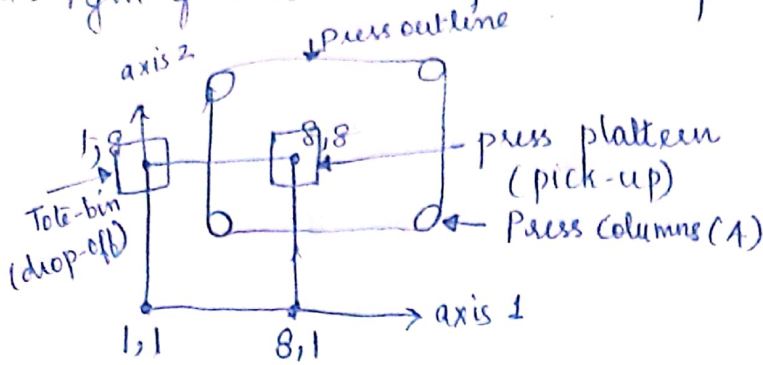 Press outline
axis 2
1,8
8,8
press plattern
(pick-up)
Tote-bin
(drop-off)
Press Columns (4)
axis 1
1,1
8,1